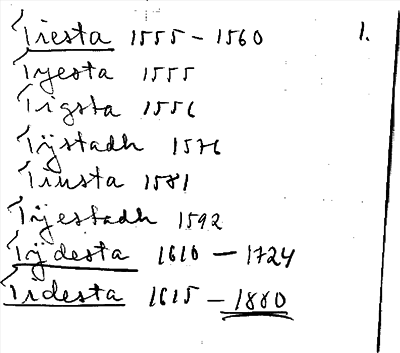 Tiesta 1555 - 1560 1.
Tyesta 1555
Tigsta 1556
Tijstadh 1576
Tiusta 1581
Tijestadh 1592
Tijdesta 1610 - 1724
Tidesta 1615 - 1880